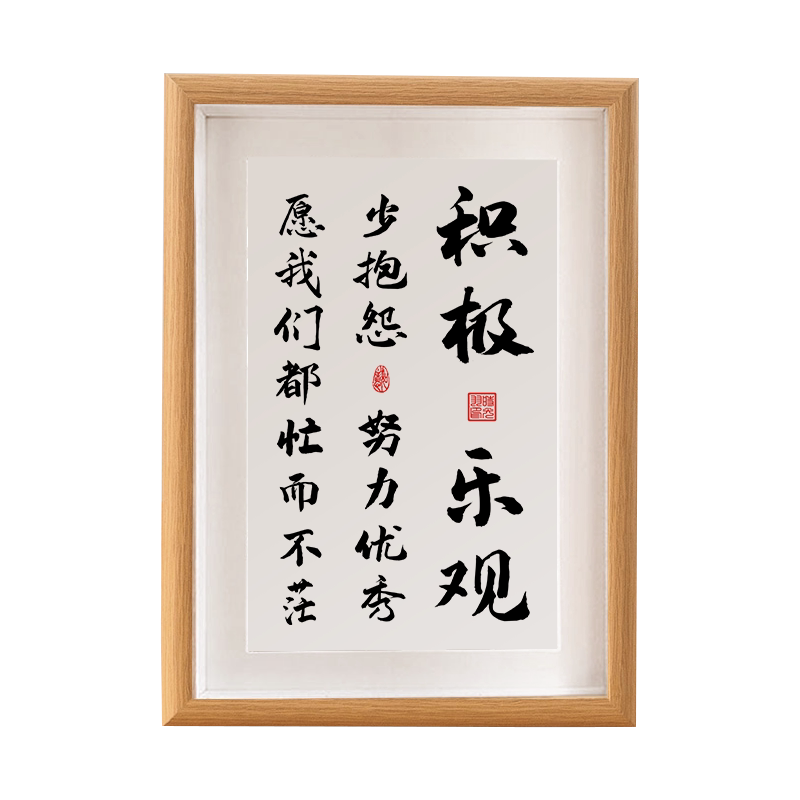 积极乐观
少抱怨 努力优秀
愿我们都忙而不茫